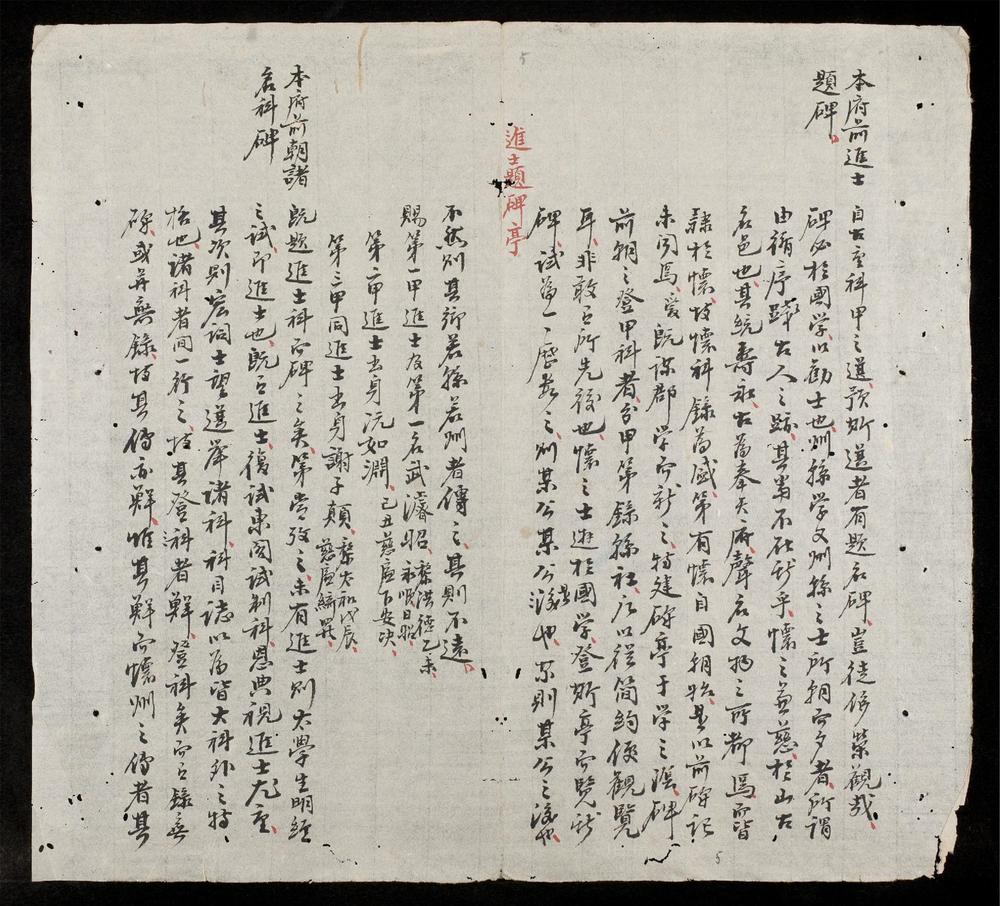 本府前進士
題碑
自古重科甲之選預斯選者有題名碑豈徒侈榮觀哉
碑必於國学以勸士也州縣学又州縣之士所朝而夕者所謂
由循序躋古人之跡其常不在斯乎懷之並慈於山古
名邑也其統壽社古為奉天府聲名文物之所都焉而皆
隷於懷故懷科錄為盛第有懷自國朝始是以前碑記
未聞焉爰既謀郡学而新之特建碑亭于学之陰碑
前朝之登甲科者分甲第錄縣社所以從簡約便觀覽
耳非敢有所先後也懷之士遊於國学登斯亭而覽斯
碑試為一歷数之則某公某公後也又則某公之後也
進士題碑亭
不然則其鄉若縣若州者傳之其則不遠
賜第一甲進士及第一名武濬昭 黎洪德乙未
第二甲進士出身沅如淵 己丑慈廉下安决
第三甲同進士出身謝子顛 黎太和戊辰
慈廉
本府前朝諸
名科碑
既題進士科而碑之矣第嘗攷之未有進士則太學生明經
之試即進士也既有進士復試東閣試制科恩典視進士尤重
其次則宏詞士望選舉諸科科目誌以為皆大科外之特
恪也諸科者間一行之故其登科者鮮登科矣而有錄無
碑或并無錄故其傳亦鮮惟其鮮而懷州之傳者其
5
5